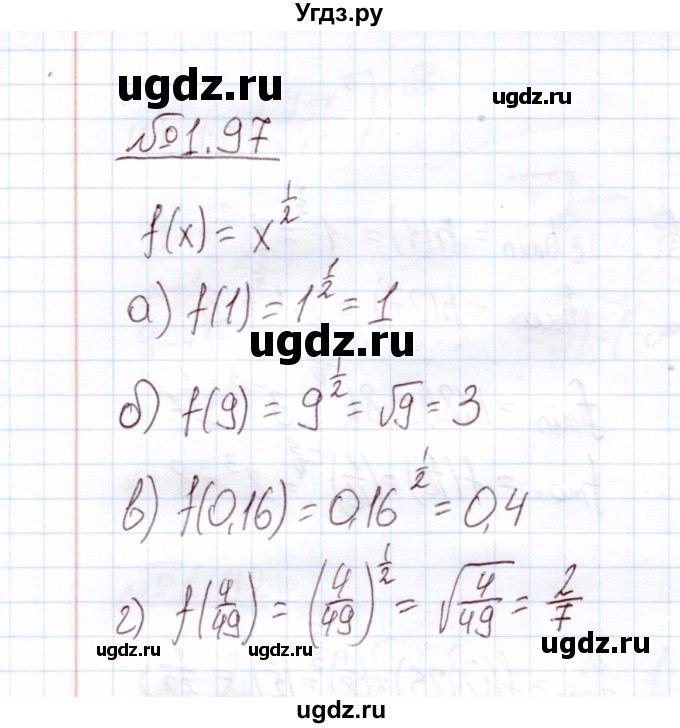 Угдз.ру
ugdz.ru
ugdz.ru
№1.97
f(x) = x^{1/2}
а) f(1) = 1^{1/2} = 1
ugdz.ru
б) f(9) = 9^{1/2} = √9 = 3
в) f(0,16) = 0,16^{1/2} = 0,4
г) f(4/49) = (4/49)^{1/2} = √(4/49) = 2/7
ugdz.ru
ugdz.ru
ugdz.ru